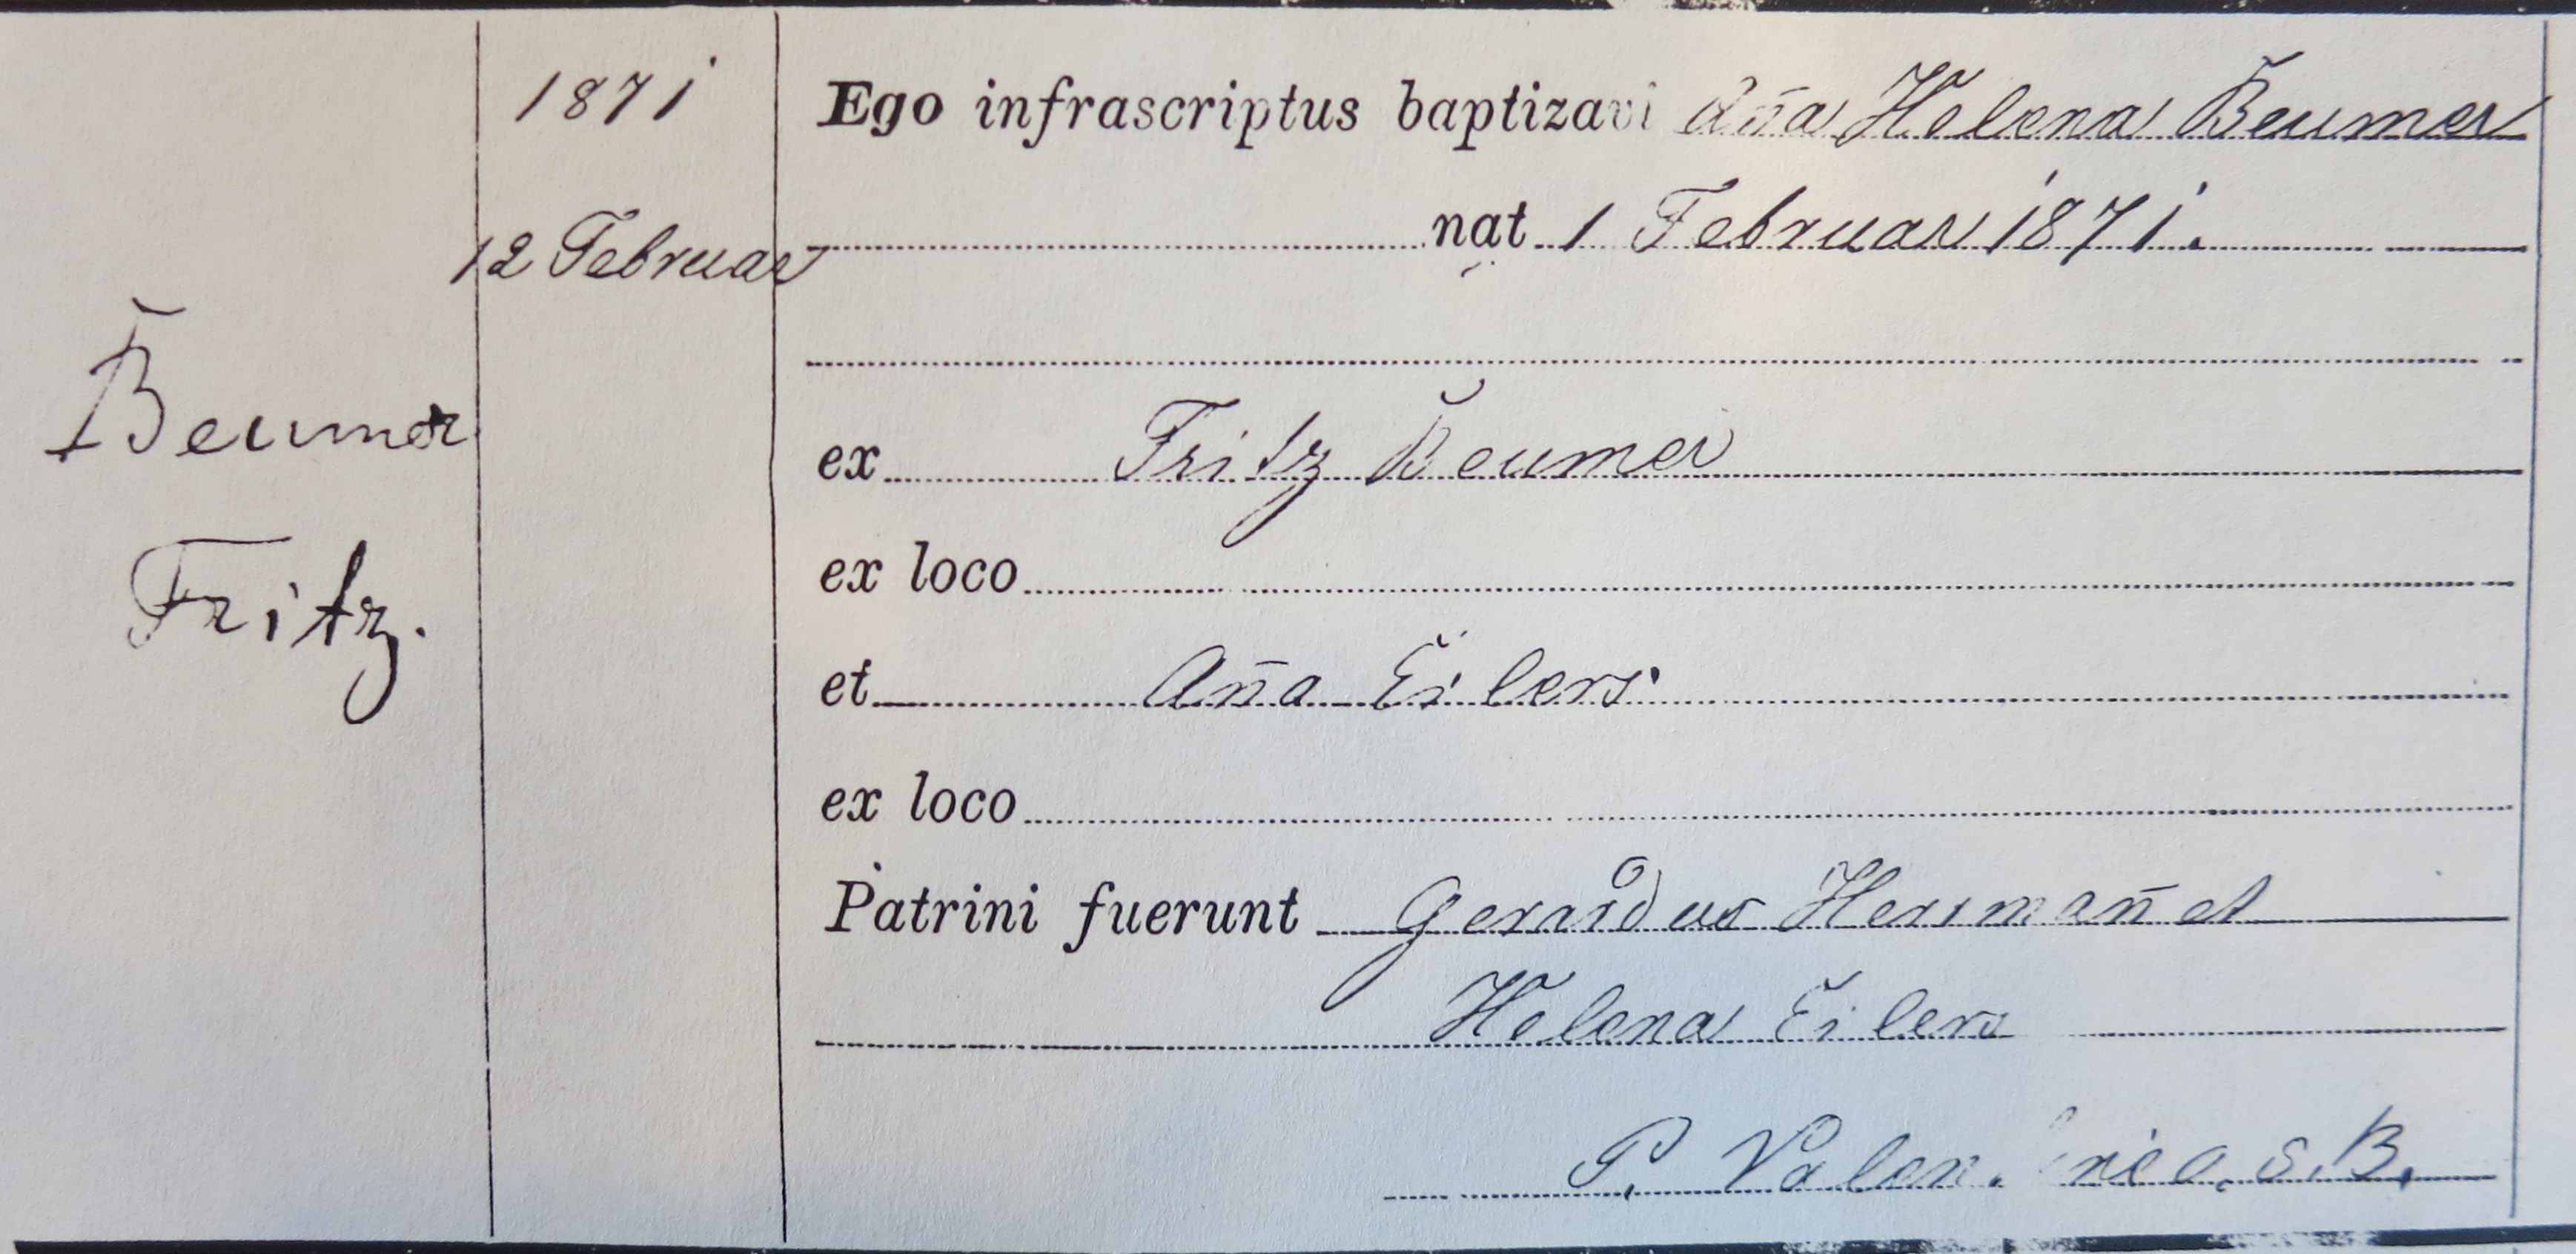 1871
12 Februar
Beumer
Fritz.
Ego infrascriptus baptizavi Aña Helena Beumer
nat 1 Februar 1871.
ex Fritz Beumer
ex loco
et Aña Eilers
ex loco
Patrini fuerunt Gerardus Hermañ et
Helena Eilers
P. o.S.B.